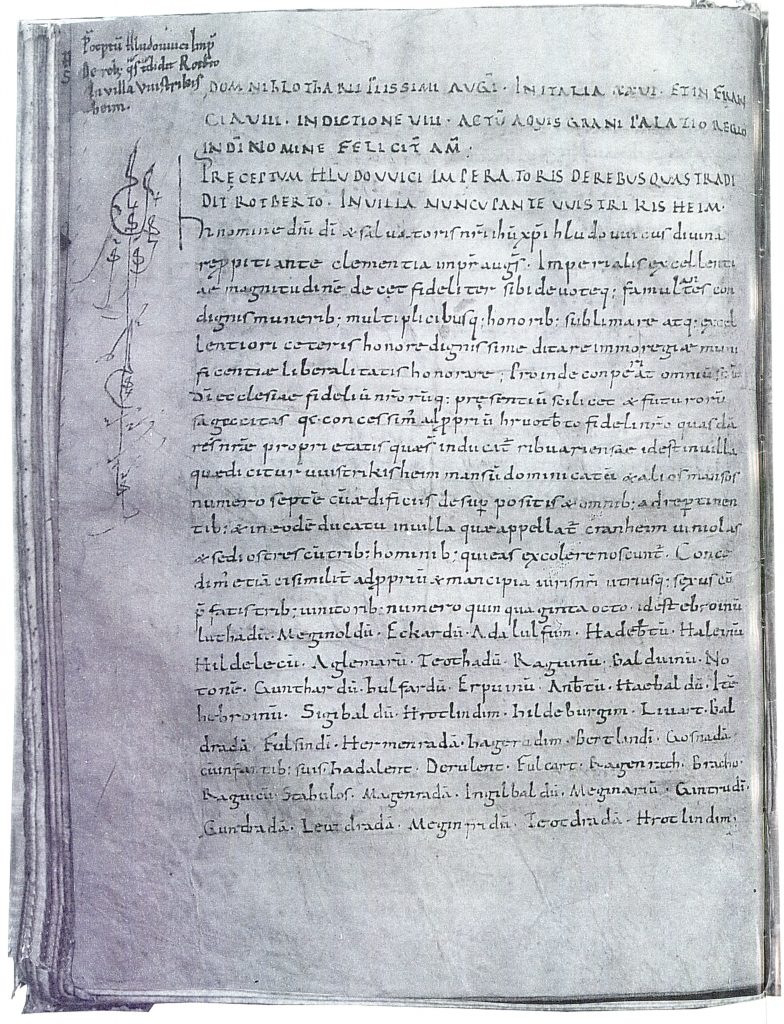 P̄ceptū Hludouuici Imp̄
De reb; q̄s t̄didit Rotb̄to
In villa vuistrikis
heim.
DOMNI HLOTHARII PIISSIMI AUG̅. IN ITALIA XXVI. ET IN FRAN
CIA VIII. INDICTIONE VIII. ACTŪ AQUISGRANI PALATIO REGIO
IN DĪ NOMINE FELICIT̄ AM̄;
PRĘCEPTUM HLUDOVVICI IMPERATORIS DE REBUS QUAS TRADI
DIT ROTBERTO. IN VILLA NUNCUPANTE VVISTRIKISHEIM.
In nomine dn̄i dī & saluatoris nr̄i ihū xp̄i hludouuicus diuina
reppitiante clementia imp̄r augs̄. Imperialis excellenti
ae magnitudinē decet fideliter sibi deuoteq; famulantes con
dignis munerib; multiplicibusq; honorib; sublimare atq; excel
lentiori ceteris honore dignissime ditare immo regiae muni
ficentiae liberalitatis honorare; Proinde conperiat omniū
dī ecclesiae fideliū nr̄orūq; pręsentiū scilicet & futurorū
sagacitas qc̄ concessim̄ ad ppriū hruotb̄to fideli nr̄o quasdā
res nr̄ae proprietatis quae s̄ in ducat̄ ribuariensae id est in villa
quae dicitur vuistrikisheim mansū dominicatū & alios mansos
numero septē cū aedificiis desup̄ positis & omnib; ad se pertinen
tib; & in eodē ducatu in villa quae appellat̄ cranheim uiniolas
& sediostres cū trib; hominib; qui eas excolere noscunt̄. Conce
dim̄ etiā ei similit̄ ad ppriū & mancipia iuris nr̄i utriusq; sexus cū
p̄fatis trib; uinitorib; numero quinquaginta octo. id est ebroinū
luthadū. Meginoldū. Eckardū. Adalulfum. Hadeb̄tū. Haleinū
Hildeleciū. Aglemarū. Teothadū. Raguinū. Balduinū. No
tonē. Gunthardū. bulfardū. Erpuinū. Anb̄tū. Haebaldū. Itē
hebroinū. Sigibaldū. Hrotlindim. hildeburgim. Liuart. bal
dradā. Fulsindī. Hermenradā. hageradim. Bertlindī. Gosradā
cū infantib; suis. hadalent. Derulent. Fulcart. Ragenrich. Bracho.
Raguicū. Stabulos. Magenradā. Ingilbaldū. Meginariū. Gintrudī.
Gundradā. Leutdradā. Meginfridū. Teotdradā. Hrotlindim.